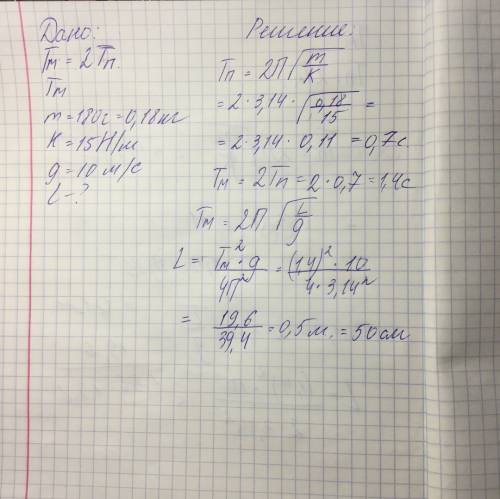 Дано:
Тм = 2Тп.
Тм
m = 180г = 0,18кг
K = 15Н/м
g = 10 м/с
L - ?
Решение:
Тп = 2П√(m/K) =
= 2 · 3,14 · √(0,18/15) =
= 2 · 3,14 · 0,11 = 0,7с.
Тм = 2Тп = 2 · 0,7 = 1,4с
Тм = 2П √(L/g)
L = Тм² · g / 4П² = (1,4)² · 10 / 4 · 3,14²
= 19,6 / 39,4 = 0,5м. = 50см